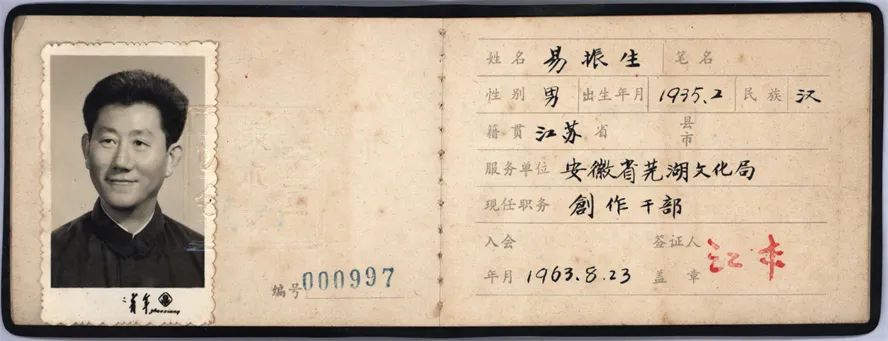 编号000997
姓名 易振生 笔名
性别 男 出生年月 1935.2 民族 汉
籍贯 江苏 省 县市
服务单位 安徽省芜湖文化局
现任职务 創作干部
入会年月 1963.8.23 签证人盖章